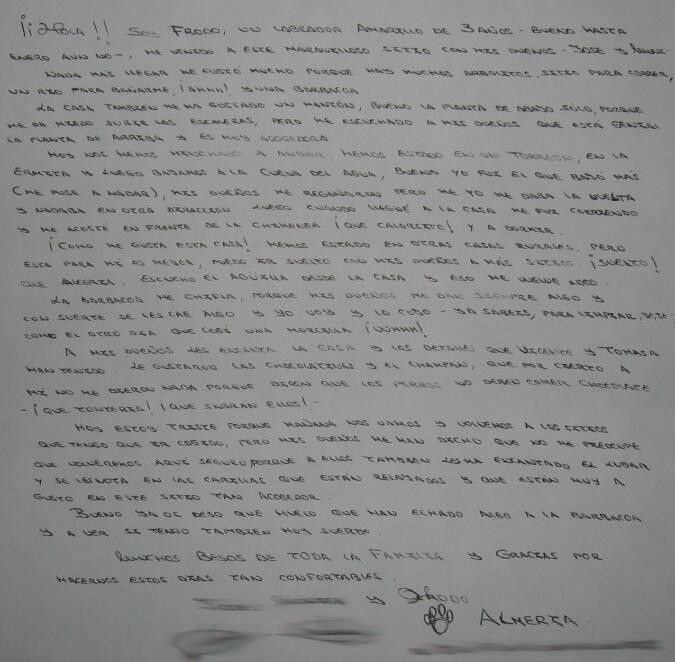 ¡¡Hola!! Soy Frodo, un labrador amarillo de 3 años - bueno hasta
enero aun no -, he venido a este maravilloso sitio con mis dueños - Jose y
Nada más llegar me gustó mucho porque hay muchos arbolitos, sitio para correr,
un rio para bañarme, ¡ahhh! y una barbacoa.
La casa también me ha gustado un montón, bueno la planta de abajo sólo, porque
me da miedo subir las escaleras, pero he escuchado a mis dueños que está genial
la planta de arriba y es muy acogedora.
Hoy nos hemos hinchado a andar, hemos estado en un torreón, en la
ermita y luego bajamos a la Cueva del Agua, bueno yo fui el que bajó más
(me puse a nadar), mis dueños me regañaron pero me yo me daba la vuelta
y nadaba en otra dirección. Luego cuando llegué a la casa me fui corriendo
y me acosté en frente de la chimenea ¡que calorcito! y a dormir.
¡Como me gusta esta casa!. Hemos estado en otras casas rurales, pero
esta para mi es mejor, puedo ir suelto con mis dueños a más sitios. ¡suelto!
que alegria. Escucho el aguilla desde la casa y eso me vuelve loco.
La barbacoa me chifla, porque mis dueños me dan siempre algo y
con suerte se les cae algo y yo voy y lo cojo - ya sabeis, para limpiar, jeje -
como el otro dia que cogí una morcilla ¡uhmm!
A mis dueños les encanta la casa y los detalles que Vicente y Tomasa
han tenido. Le gustaron las chocolatinas y el champán, que por cierto a
mí no me dieron nada porque dicen que los perros no deben comer chocolate
- ¡que tonteria! ¡que sabrán ellos! -
Hoy estoy triste porque mañana nos vamos y volvemos a los sitios
que tengo que ir cogido, pero mis dueños me han dicho que no me preocupe
que volveremos aquí seguro, porque a ellos también les ha encantado el lugar
y se les nota en las carillas que están relajados y que están muy a
gusto en este sitio tan acogedor.
Bueno ya os dejo que huelo que han echado algo a la barbacoa
y a ver si tengo también hoy suerte.
Muchos besos de toda la familia y gracias por
hacernos estos dias tan confortables.
y Frodo
Almeria.